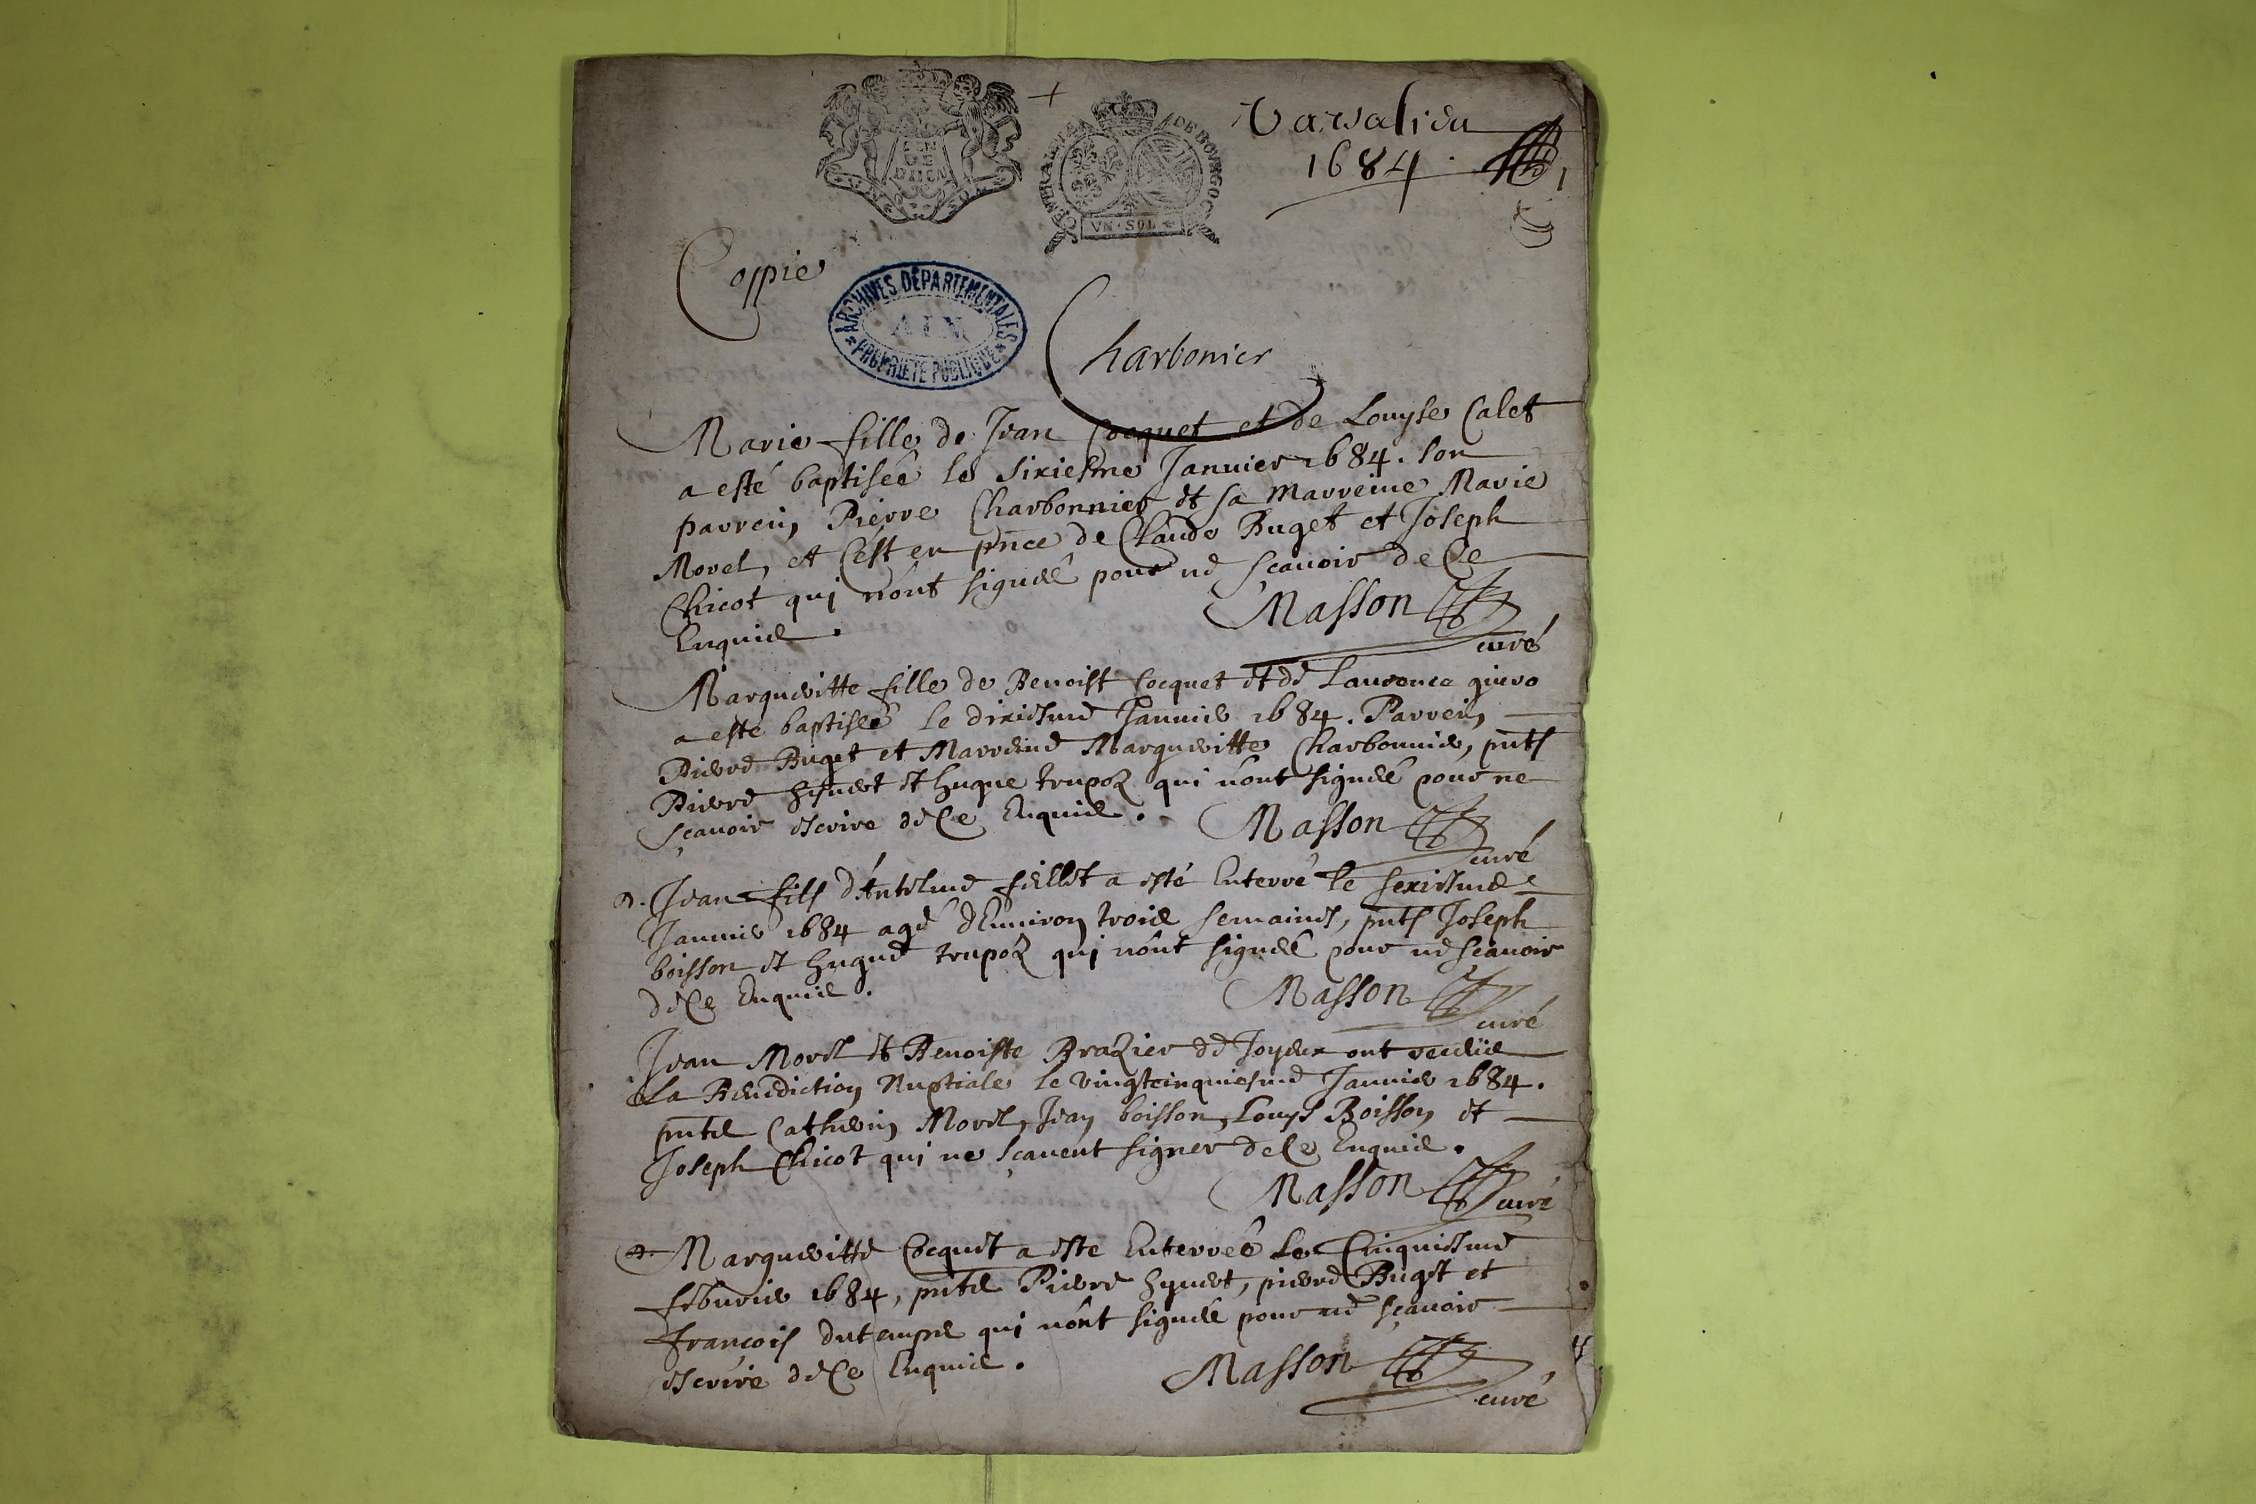 Varsalieu
1684
GENERALITE DE BOVRGOG
VN · SOL
Coppie
ARCHIVES DÉPARTEMENTALES
AIN
PROPRIÉTÉ PUBLIQUE
Charbonier
Marie fille de Jean Cocquet et de Louyse Calet
a esté baptisée le sixiesme Januier 1684. son
parrein, Pierre Charbonnier et sa marreine Marie
Morel, et c'est en pnce de Claude Buget et Joseph
Chicot qui n'ont signéé pour ne scauoir de ce
Enquis.
Masson
curé
Margueritte fille de Benoist Cocquet et de Laurence
a esté baptiseé le dixiesme Januier 1684. Parrein,
Pierre Buget et Marreine Margueritte Charbonnier, pnts
Pierre et Hugue trupoz qui n'ont signéé pour ne
sçauoir escrire de ce Enquis.
Masson
curé
Jean fils d'Antelme fillet a esté Enterré le sexiesme
Januier 1684 agé d'Enuiron trois semaines, pnts Joseph
boisson et Hugue trupoz qui n'ont signéé pour ne sçauoir
de ce Enquis.
Masson
curé
Jean Morel et Benoiste Brazier de Joyeux ont receüe
La Benediction Nuptiale le vingtcinquiesme Januier 1684.
pntes Catherin Morel, Jean boisson, Louys Boisson, et
Joseph Chicot qui ne sçauent signer de ce Enquis.
Masson
curé
Margueritte Cocquet a esté Enterreé Le Cinquiesme
feburier 1684, pntes Pierre, pierre Buget et
françois dutemps qui n'ont signéé pour ne sçauoir
escrire de ce Enquis.
Masson
curé